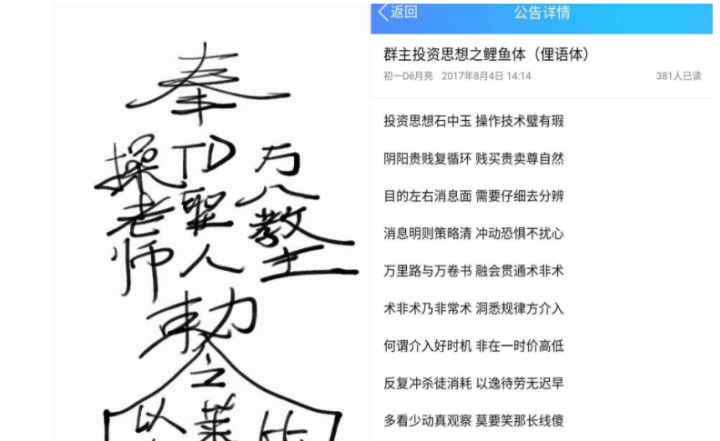 奉
操 TD 万
老 聖 人
师 人 教
主
敕
令
返回 公告详情
群主投资思想之鲤鱼体（俚语体）
初一Dê月亮 2017年8月4日 14:14 381人已读
投资思想石中玉 操作技术璧有瑕
阴阳贵贱复循环 贱买贵卖尊自然
目的左右消息面 需要仔细去分辨
消息明则策略清 冲动恐惧不扰心
万里路与万卷书 融会贯通术非术
术非术乃非常术 洞悉规律方介入
何谓介入好时机 非在一时价高低
反复冲杀徒消耗 以逸待劳无迟早
多看少动真观察 莫要笑那长线傻